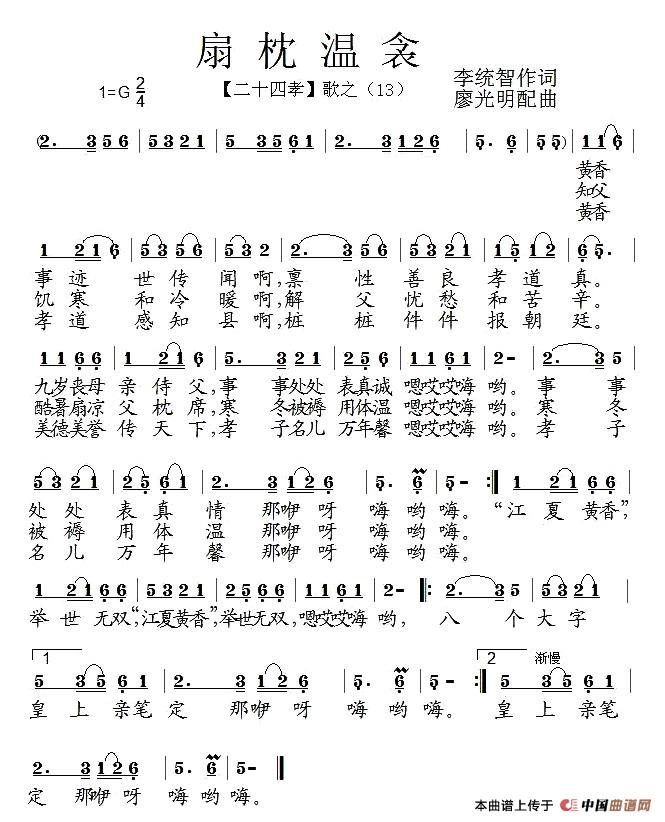 扇枕温衾
1=G 2/4
【二十四孝】歌之（13）
李统智作词
廖光明配曲
(2. 3 5 6 | 5 3 2 1 | 5 3 5 6 | 2. 3 1 2 6 | 5. 6 | 5 5) | 1 1 6 |
黄香
知父
黄香
1 2 1 6 | 5 3 5 6 | 5 3 2 | 2. 3 | 5 3 5 6 | 1 5 1 2 | 6 5. |
事迹 世传闻啊,禀 性善良孝道真。
饥寒 和冷暖啊,解 父忧愁和苦辛。
孝道 感知县啊,桩 桩件件报朝廷。
1 1 6 6 | 1 2 1 6 | 5. 3 | 2 3 2 1 | 2 5 6 6 | 1 1 6 1 | 2 - | 2. 3 |
九岁丧母 亲侍父,事 事处处 表真诚 嗯哎哎嗨 哟。事 事
酷暑扇凉 父枕席,寒 冬被褥 用体温 嗯哎哎嗨 哟。寒 冬
美德美誉 传天下,孝 子名儿 万年馨 嗯哎哎嗨 哟。孝 子
5 3 2 1 | 2 5 6 1 | 2. 3 | 1 2 6 | 5. 6 | 5 - :| 1 2 1 6 6 |
处处 表真情 那咿呀 嗨哟嗨。“江夏黄香”,
被褥 用体温 那咿呀 嗨哟嗨。
名儿 万年馨 那咿呀 嗨哟嗨。
1 2 1 6 6 | 5 3 2 1 | 2 5 6 6 | 1 1 6 1 | 2 - |: 2. 3 | 5 5 1 2 |
举世无双”,“江夏黄香”,举世无双,嗯哎哎嗨 哟, 八 个大字
1
5 3 5 6 1 | 2. 3 1 2 6 | 5. 6 | 5 - :|
2 渐慢
5 3 5 6 1 |
皇上亲笔 定 那咿呀 嗨哟嗨。皇上亲笔
2. 3 1 2 6 | 5. 6 | 5 - ||
定 那咿呀 嗨哟嗨。
本曲谱上传于 中国曲谱网